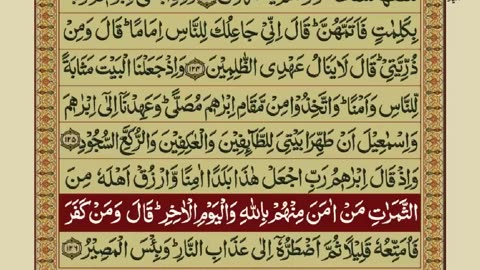 بِكَلِمٰتٍ فَاَتَمَّهُنَّ ؕ قَالَ اِنِّیْ جَاعِلُكَ لِلنَّاسِ اِمَامًا ؕ قَالَ وَمِنْ
ذُرِّیَّتِیْ ؕ قَالَ لَا یَنَالُ عَهْدِی الظّٰلِمِیْنَ ﴿۱۲۴﴾ وَاِذْ جَعَلْنَا الْبَیْتَ مَثَابَةً
لِّلنَّاسِ وَاَمْنًا ؕ وَاتَّخِذُوْا مِنْ مَّقَامِ اِبْرٰهٖمَ مُصَلًّی ؕ وَعَهِدْنَاۤ اِلٰۤی اِبْرٰهٖمَ
وَاِسْمٰعِیْلَ اَنْ طَهِّرَا بَیْتِیَ لِلطَّآئِفِیْنَ وَالْعٰكِفِیْنَ وَالرُّكَّعِ السُّجُوْدِ ﴿۱۲۵﴾
وَاِذْ قَالَ اِبْرٰهٖمُ رَبِّ اجْعَلْ هٰذَا بَلَدًا اٰمِنًا وَّارْزُقْ اَهْلَهٗ مِنَ
الثَّمَرٰتِ مَنْ اٰمَنَ مِنْهُمْ بِاللّٰهِ وَالْیَوْمِ الْاٰخِرِ ؕ قَالَ وَمَنْ كَفَرَ
فَاُمَتِّعُهٗ قَلِیْلًا ثُمَّ اَضْطَرُّهٗۤ اِلٰی عَذَابِ النَّارِ ؕ وَبِئْسَ الْمَصِیْرُ ﴿۱۲۶﴾